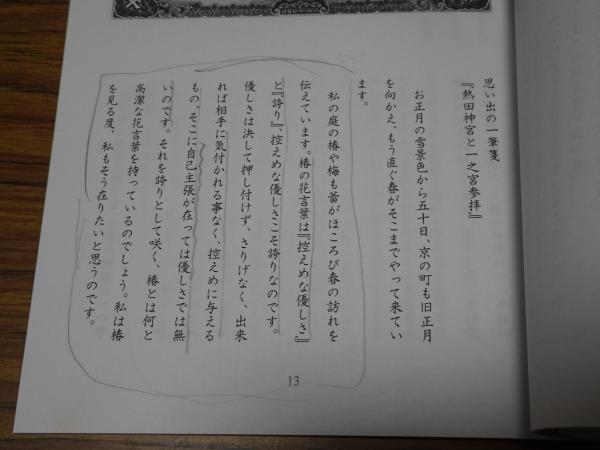 思い出の一筆箋
『熱田神宮と一之宮参拝』
お正月の雪景色から五十日、京の町も旧正月
を向かえ、もう直ぐ春がそこまでやって来てい
ます。
私の庭の椿や梅も蕾がほころび春の訪れを
伝えています。椿の花言葉は『控えめな優しさ』
と『誇り』、控えめな優しさこそ誇りなのです。
優しさは決して押し付けず、さりげなく、出来
れば相手に気付かれる事なく、控えめに与える
もの、そこに自己主張が在っては優しさでは無
いのです。それを誇りとして咲く、椿とは何と
高潔な花言葉を持っているのでしょう。私は椿
を見る度、私もそう在りたいと思うのです。
13